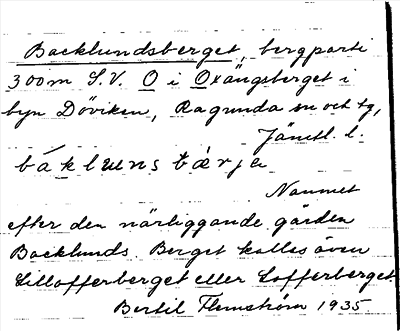 Backlundsberget, bergparti
300m S.V. O i Oxängsberget i
byn Döviken, Ragunda sn och tg,
Jämtl. l.
båklɯns bærje
Namnet
efter den närliggande gården
Backlunds. Berget kallas även
Lillofferberget eller Lofferberget.
Bertil Flemström 1935